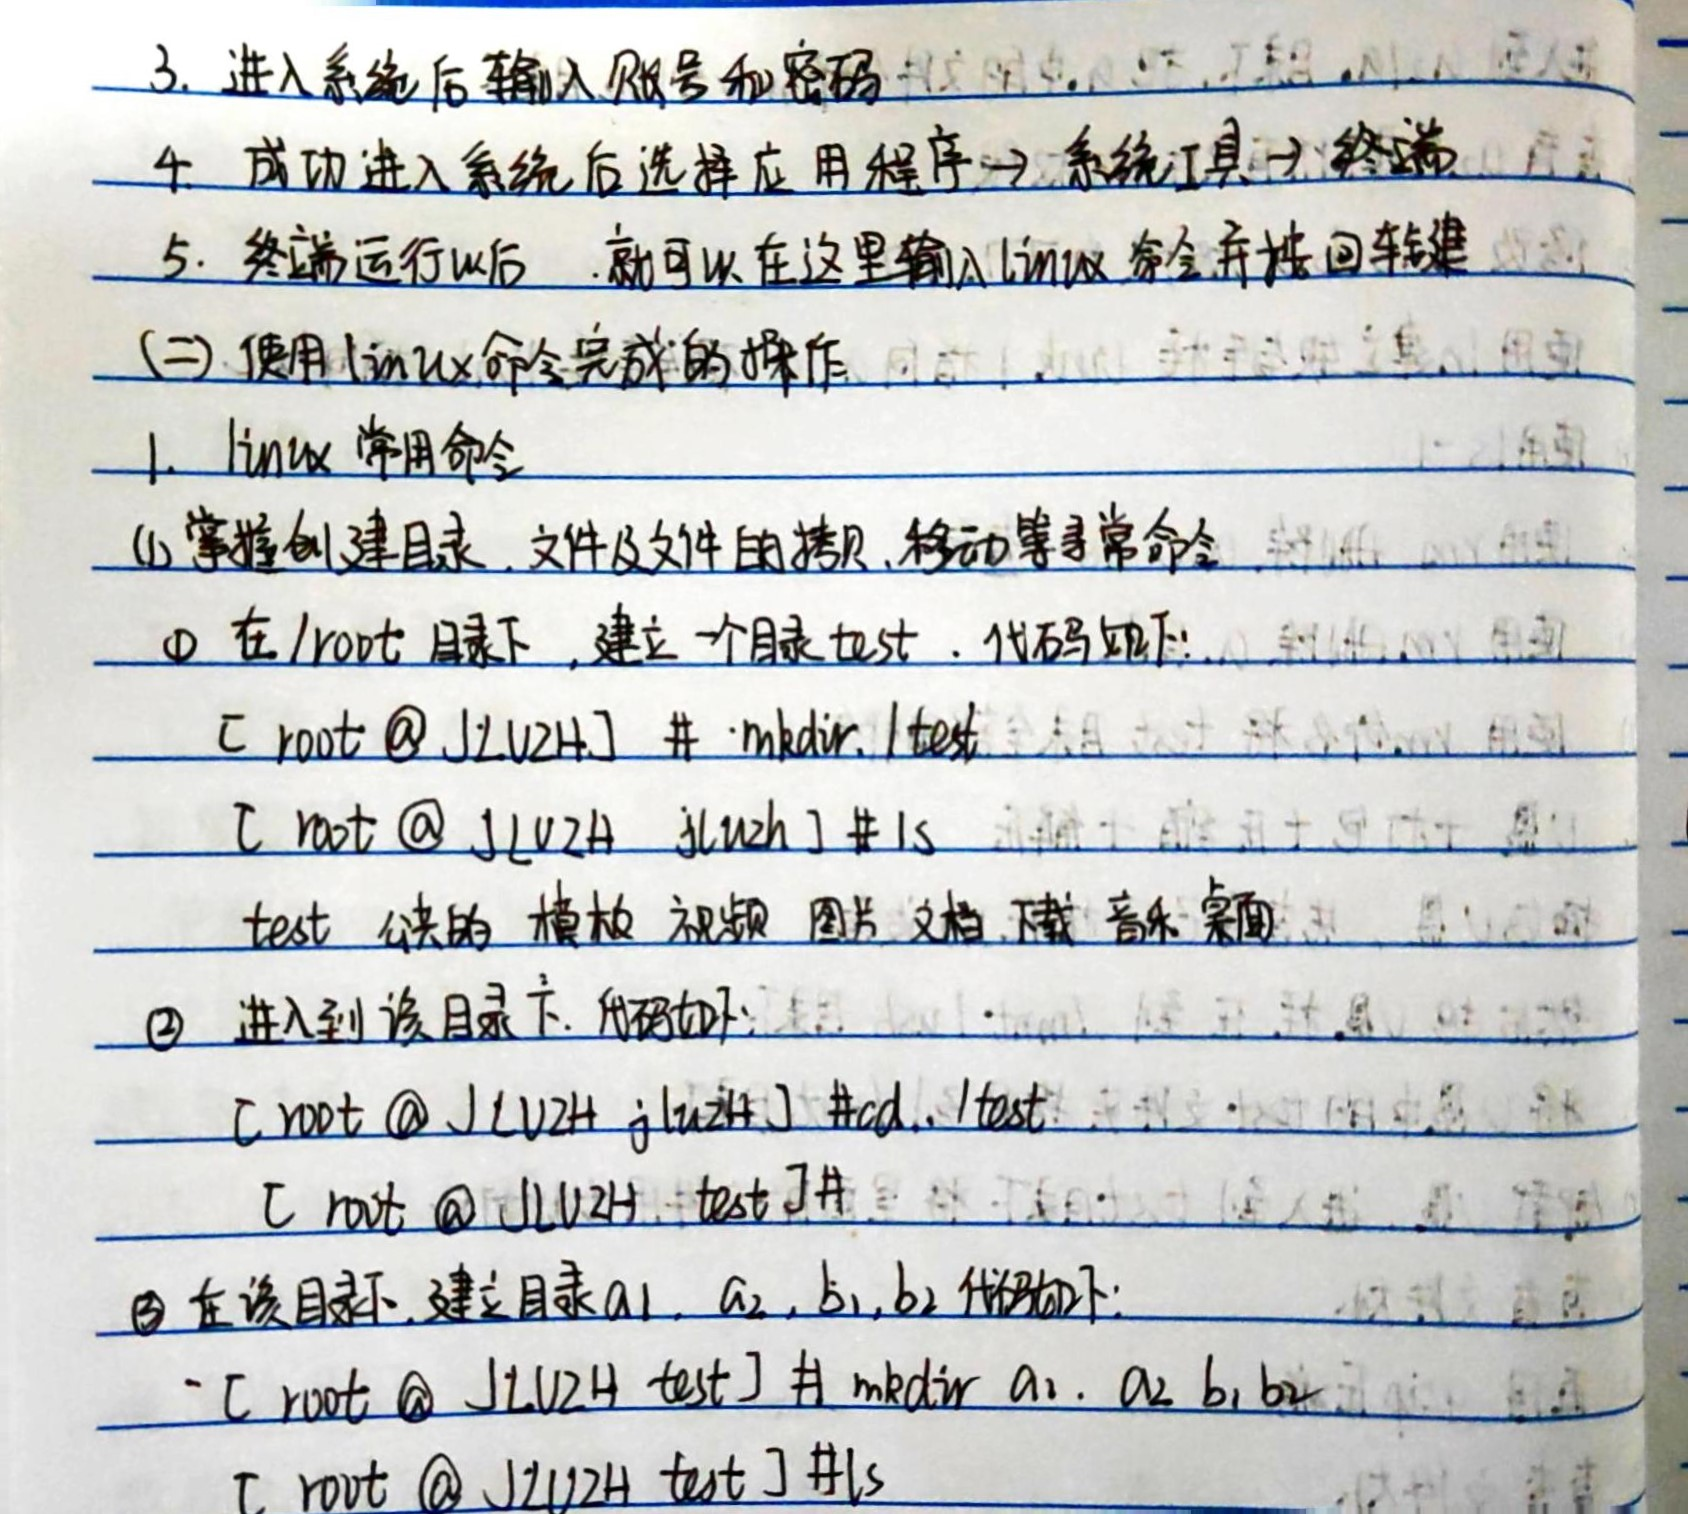 3. 进入系统后输入账号和密码
4. 成功进入系统后选择应用程序→系统工具→终端
5. 终端运行以后 .就可以在这里输入linux 命令并按回车键
(二) 使用linux命令完成的操作
1. linux 常用命令
(1) 掌握创建目录、文件及文件的拷贝、移动等寻常命令
① 在/root 目录下,建立一个目录test . 代码如下:
[ root @ JLUZH ] # mkdir /test
[ root @ JLUZH jluzh ] # ls
test 公共的 模板 视频 图片 文档 下载 音乐 桌面
② 进入到该目录下. 代码如下:
[ root @ JLUZH jluzH ] #cd../test
[ root @ JLUZH test ]#
③ 在该目录下.建立目录a1. a2, b1, b2 代码如下:
-[ root @ JLUZH test ] # mkdir a1. a2 b1 b2
[ root @ JLUZH test ] #ls